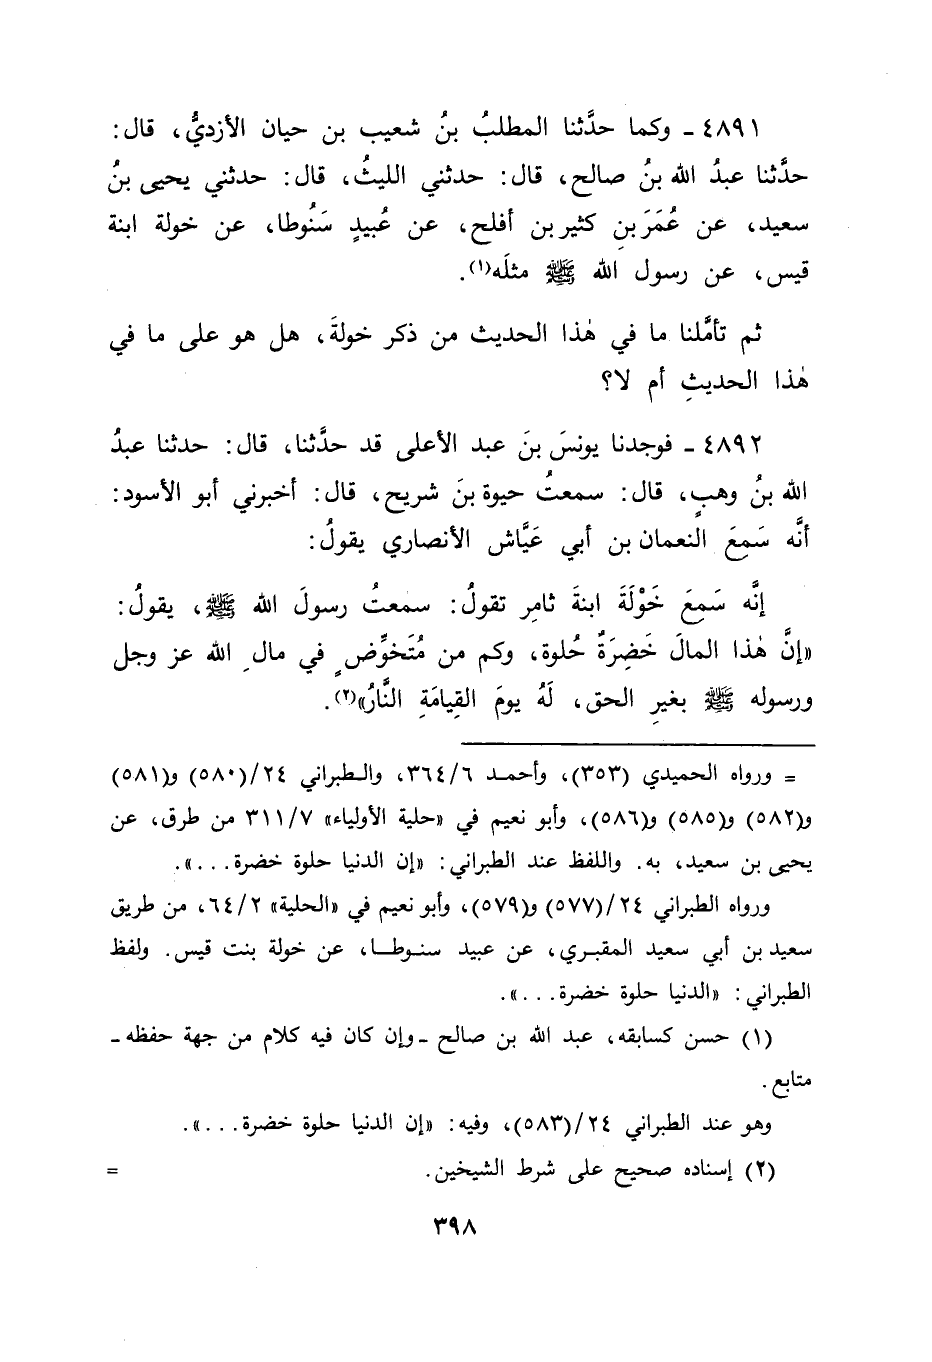 ٤٨٩١ ـ وكما حدَّثنا المطلبُ بنُ شعيب بن حيان الأزديُّ، قال:
حدَّثنا عبدُ الله بنُ صالح، قال: حدثني الليثُ، قال: حدثني يحيى بنُ
سعيد، عن عُمَرَ بنِ كثير بن أفلح، عن عُبيدٍ سَنُوطا، عن خولة ابنة
قيس، عن رسول الله ﷺ مثلَه(١).
ثم تأمَّلنا ما في هٰذا الحديث من ذكر خولةَ، هل هو على ما في
هٰذا الحديثِ أم لا؟
٤٨٩٢ ـ فوجدنا يونسَ بنَ عبد الأعلى قد حدَّثنا، قال: حدثنا عبدُ
الله بنُ وهبٍ، قال: سمعتُ حيوة بنَ شريح، قال: أخبرني أبو الأسود:
أنَّه سَمِعَ النعمان بن أبي عَيَّاش الأنصاري يقولُ:
إنَّه سَمِعَ خَوْلَةَ ابنةَ ثامِر تقولُ: سمعتُ رسولَ الله ﷺ، يقولُ:
«إنَّ هٰذا المالَ خَضِرَةٌ حُلوة، وكم من مُتَخوِّضٍ في مالِ الله عز وجل
ورسوله ﷺ بغيرِ الحق، لَهُ يومَ القِيامَةِ النَّارُ»(٢).
= ورواه الحميدي (٣٥٣)، وأحمد ٣٦٤/٦، والطبراني ٢٤/(٥٨٠) و(٥٨١)
و(٥٨٢) و(٥٨٥) و(٥٨٦)، وأبو نعيم في «حلية الأولياء» ٣١١/٧ من طرق، عن
يحيى بن سعيد، به. واللفظ عند الطبراني: «إن الدنيا حلوة خضرة...».
ورواه الطبراني ٢٤/(٥٧٧) و(٥٧٩)، وأبو نعيم في «الحلية» ٦٤/٢، من طريق
سعيد بن أبي سعيد المقبري، عن عبيد سنوطا، عن خولة بنت قيس. ولفظ
الطبراني: «الدنيا حلوة خضرة...».
(١) حسن كسابقه، عبد الله بن صالح ـ وإن كان فيه كلام من جهة حفظه ـ
متابع.
وهو عند الطبراني ٢٤/(٥٨٣)، وفيه: «إن الدنيا حلوة خضرة...».
(٢) إسناده صحيح على شرط الشيخين. =
٣٩٨